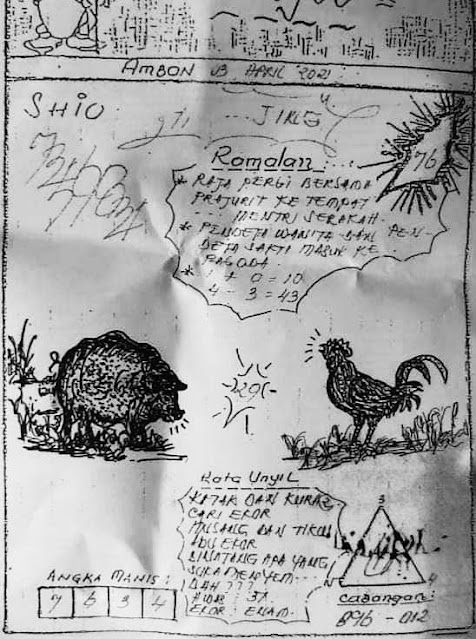 AMBON 03 APRIL 2021
SHIO
JITU
76
Ramalan
* RAJA PERGI BERSAMA
PRAJURIT KE TEMPAT
MENTRI SERAKAH
* PENDETA WANITA DAN PEN
DETA SAKTI MASUK KE
PAGODA
* 1 + 0 = 10
4 - 3 = 43
Kata Unyil
KATAK DAN KURA2
CARI EKOR
MUSANG DAN TIKUS
ADU EKOR
BINATANG APA YANG
SUKA MENYEM
DAH ???
HIDR : 3X
EKOR : ENAM
3
4
ANGKA MANIS :
7 6 3 4
Cabangan :
896 - 012